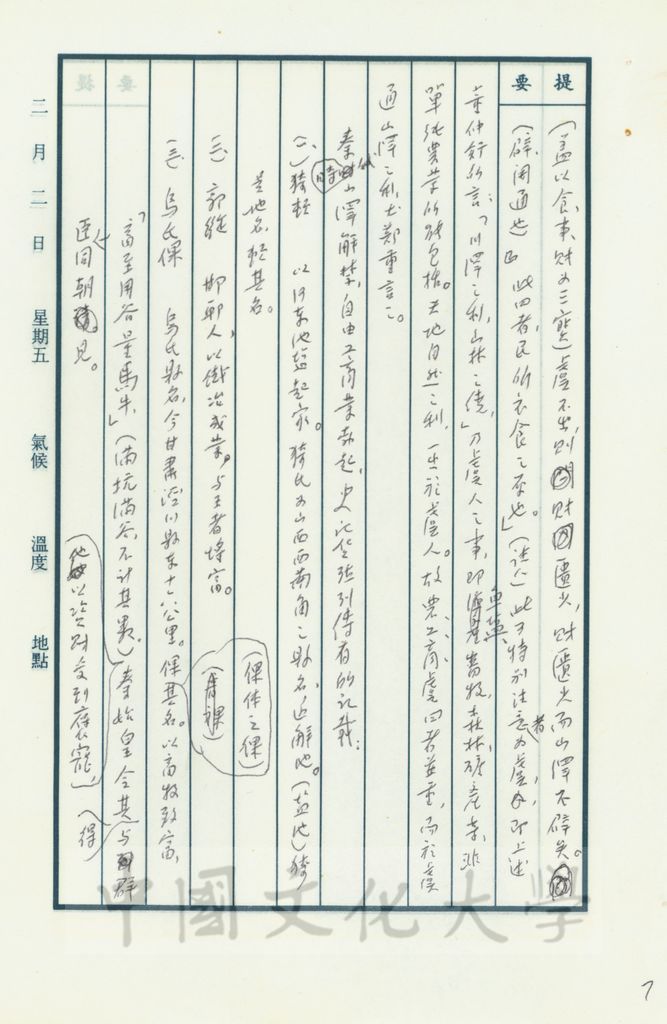 提要
（蓋以食、事、財為三寶）虞不出，則財匱少，財匱少而山澤不辟矣。
（辟，開通也）此四者，民所衣食之原也。」（注八）此可特別注意者為虞，即上述
董仲舒所言：「川澤之利，山林之饒，」乃虞人之事，即畜牧，森林，礦產業，非
單純農業所能包括。天地自然之利，一出於虞人。故農、工、商、虞四者並重，而於虞
通山澤之利，尤鄭重言之。
秦時山澤解禁，自由工商業勃起，史記貨殖列傳有所記載：
（一）猗頓 以河東池鹽起家。猗氏為山西西南角之縣名，近解池。（鹽池）猗
是地名，頓其名。
（二）郭縱 邯鄲人，以鐵冶成業，與王者埒富。
（三）烏氏倮 烏氏縣名，今甘肅涇川縣東十八公里。倮其名。以畜牧致富，
（倮体之倮）
（音裸）
「富至用谷量馬牛，」（滿坑滿谷，不計其數）秦始皇令其與群
臣同朝見。
（他以資財受到榮寵，（得
二月二日 星期五 氣候 溫度 地點
中國文化大學
7